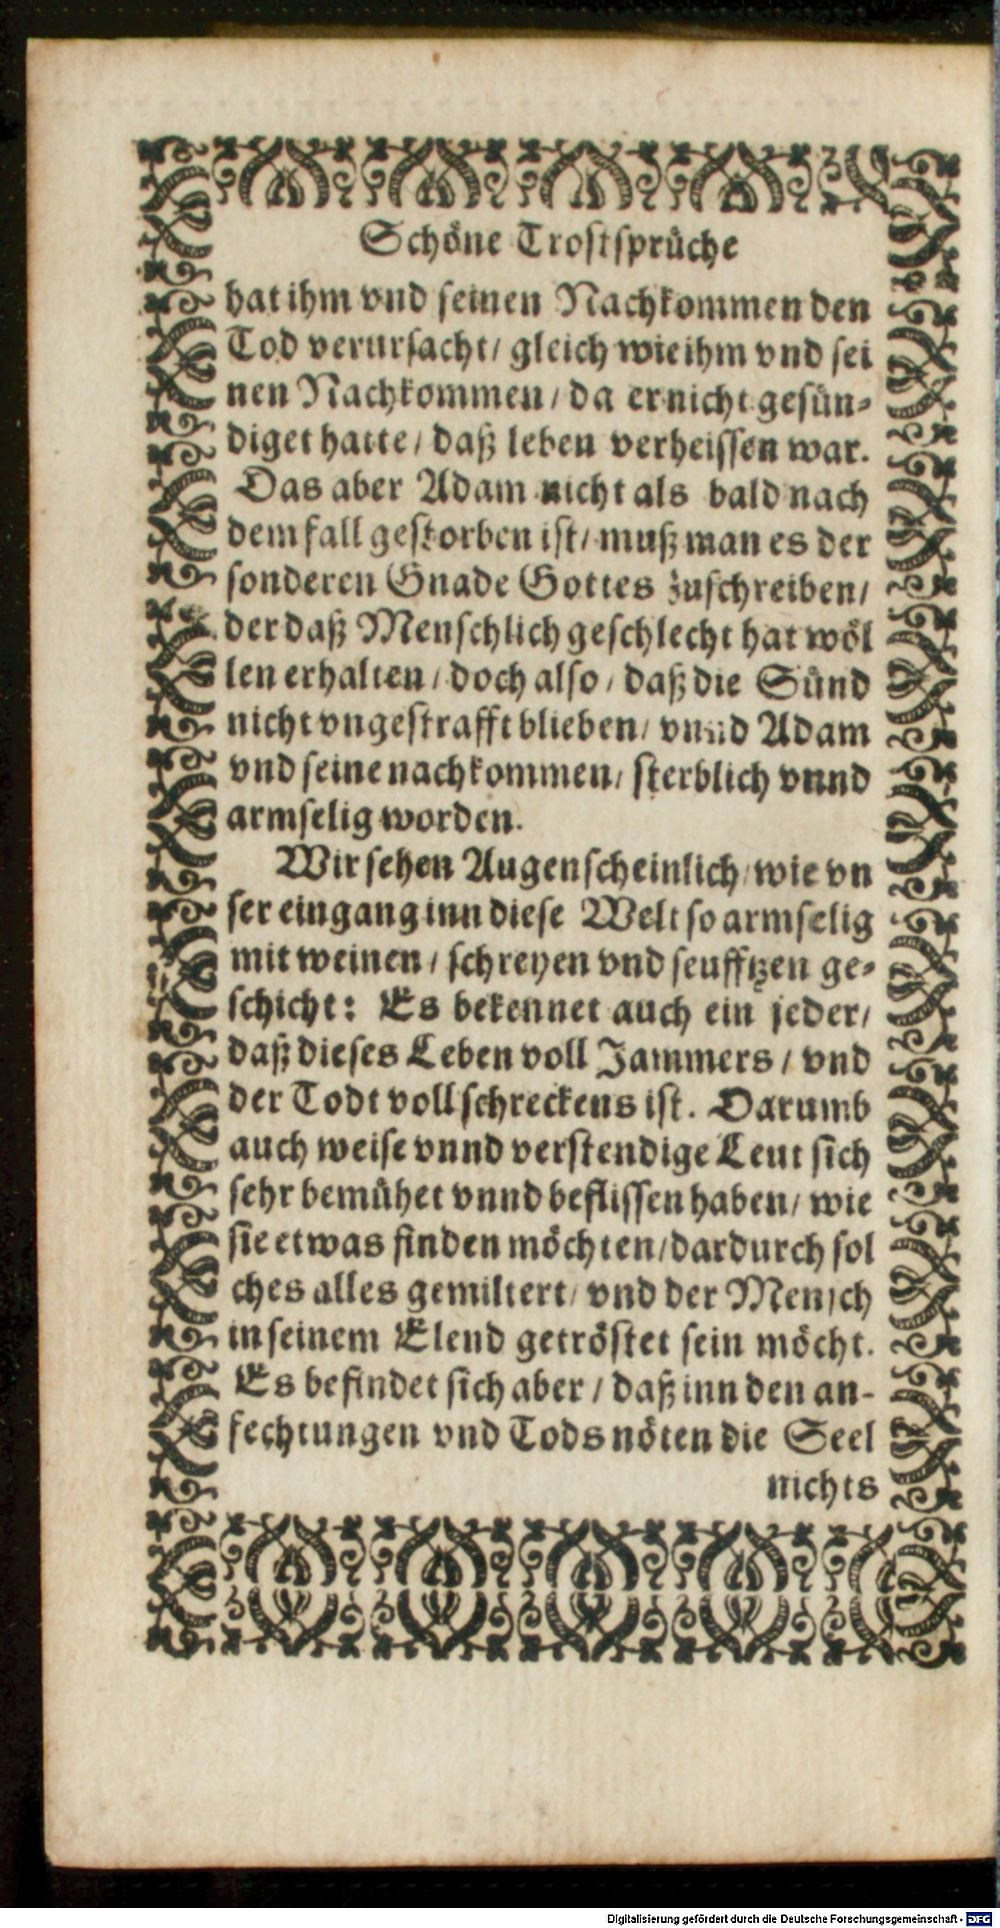 Schöne Trostsprüche
hat ihm vnd seinen Nachkommen den
Tod verursacht/ gleich wie ihm vnd sei
nen Nachkommen/ da er nicht gesün-
diget hatte/ daß leben verheissen war.
Das aber Adam nicht als bald nach
dem fall gestorben ist/ muß man es der
sonderen Gnade Gottes zuschreiben/
der daß Menschlich geschlecht hat wöl
len erhalten/ doch also/ daß die Sünd
nicht vngestrafft blieben/ vnnd Adam
vnd seine nachkommen/ sterblich vnnd
armselig worden.
Wir sehen Augenscheinlich/ wie vn
ser eingang inn diese Welt so armselig
mit weinen/ schreyen vnd seufftzen ge-
schicht: Es bekennet auch ein jeder/
daß dieses Leben voll Jammers/ vnd
der Todt voll schreckens ist. Darumb
auch weise vnnd verstendige Leut sich
sehr bemühet vnnd beflissen haben/ wie
sie etwas finden möchten/ dardurch sol
ches alles gemiltert/ vnd der Mensch
in seinem Elend getröstet sein möcht.
Es befindet sich aber/ daß inn den an-
fechtungen vnd Tods nöten die Seel
nichts
Digitalisierung gefördert durch die Deutsche Forschungsgemeinschaft - DFG